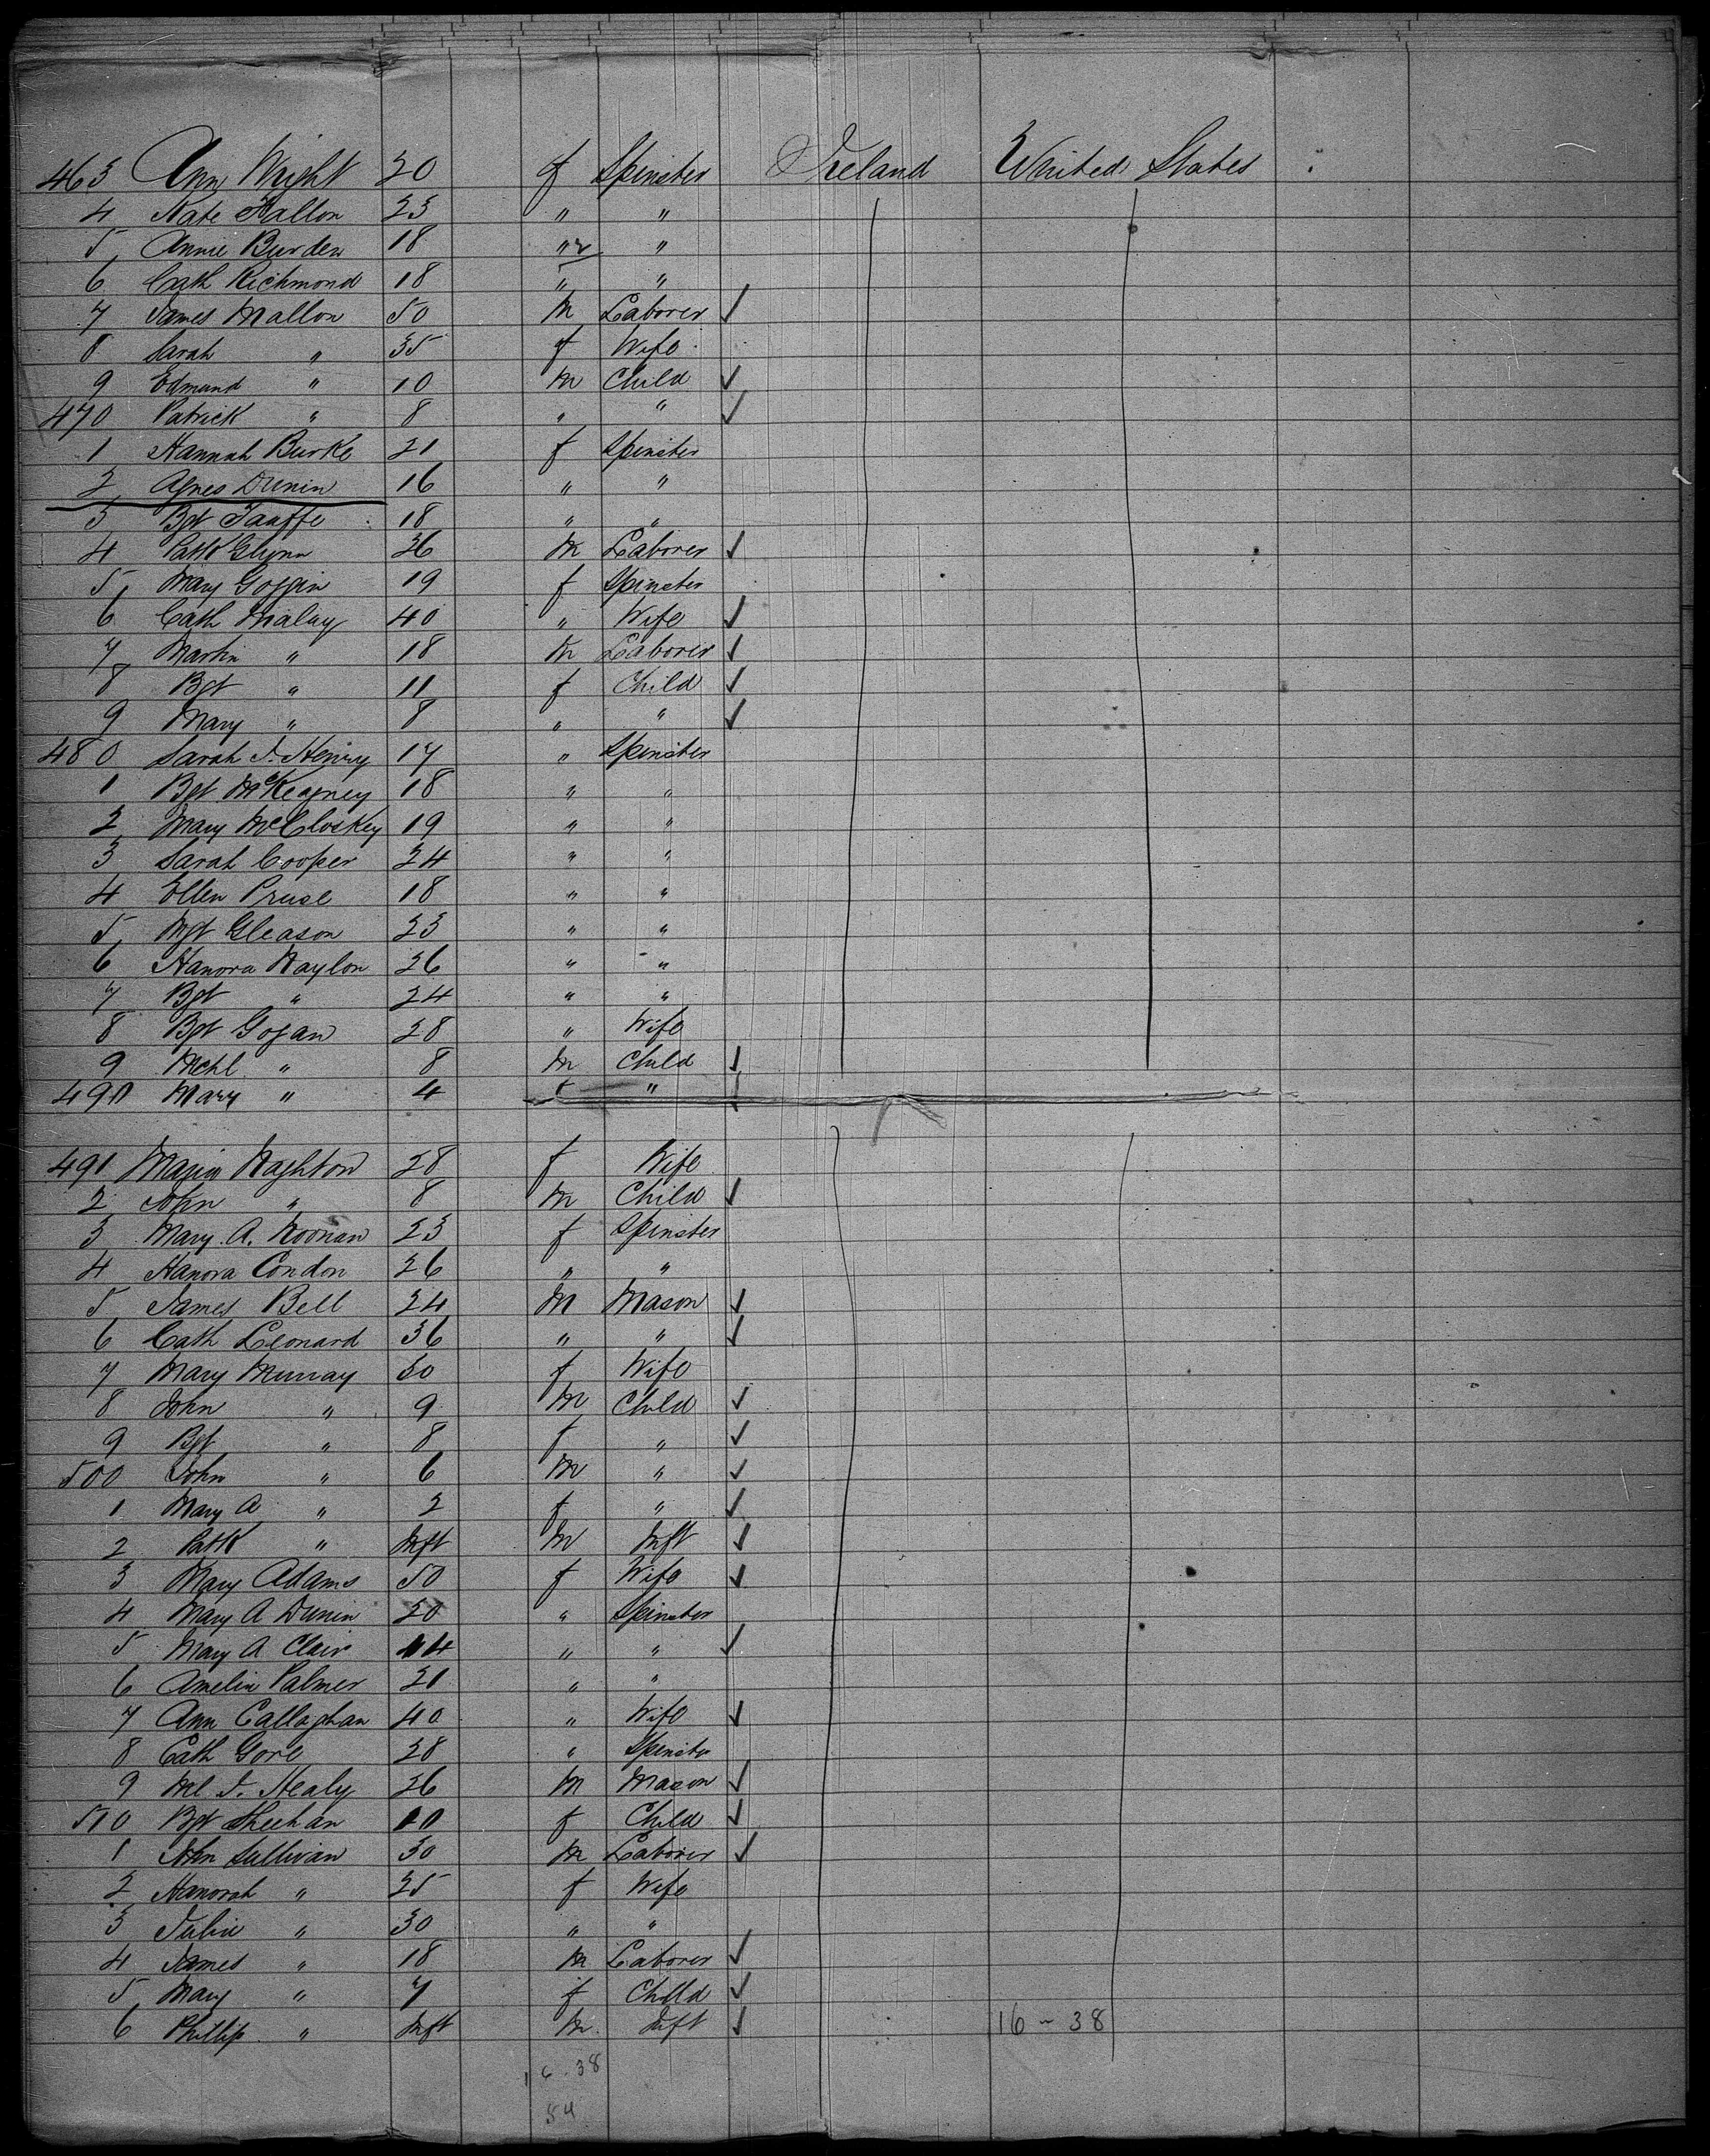 463 Ann Wright 20 f Spinster Ireland United States
4 Kate Fallon 23 " "
5 Annie Burden 18 " "
6 Cath Richmond 18 " "
7 James Mallon 50 M Laborer ✓
8 Sarah " 35 f Wife
9 Edmund " 10 M Child ✓
470 Patrick " 8 " " ✓
1 Hannah Burke 21 f Spinster
2 Agnes Dunin 16 " "
3 Bgt Taaffe 18 " "
4 Patk Glynn 26 M Laborer ✓
5 Mary Goggin 19 f Spinster
6 Cath Malay 40 " Wife ✓
7 Martin " 18 M Laborer ✓
8 Bgt " 11 f Child ✓
9 Mary " 8 " " ✓
480 Sarah J. Henry 17 " Spinster
1 Bgt McKeagney 18 " "
2 Mary McCloskey 19 " "
3 Sarah Cooper 24 " "
4 Ellen Pruse 18 " "
5 Mgt Gleason 23 " "
6 Hanora Naylon 26 " "
7 Bgt " 24 " "
8 Bgt Gogan 28 " Wife
9 Mchl " 8 M Child ✓
490 Mary " 4 f " ✓
491 Maria Naghton 28 f Wife
2 John " 8 M Child ✓
3 Mary A. Noonan 23 f Spinster
4 Hanora Condon 26 " "
5 James Bell 24 M Mason ✓
6 Cath Leonard 36 " " ✓
7 Mary Murray 30 f Wife
8 John " 9 M Child ✓
9 Bgt " 8 f " ✓
500 John " 6 M " ✓
1 Mary A " 2 f " ✓
2 Patk " Inft M Inft ✓
3 Mary Adams 50 f Wife ✓
4 Mary A Dunin 20 " Spinster
5 Mary A Clair 14 " " ✓
6 Amelia Palmer 21 " "
7 Ann Callaghan 40 " Wife ✓
8 Cath Gore 28 " Spinster
9 Ml J. Healy 26 M Mason ✓
510 Bgt Sheehan 10 f Child ✓
1 John Sullivan 30 M Laborer ✓
2 Hanorah " 25 f Wife
3 Julia " 30 " "
4 James " 18 M Laborer ✓
5 Mary " 7 f Child ✓
6 Phillip " Inft M. Inft ✓ 16 - 38
16.38
54